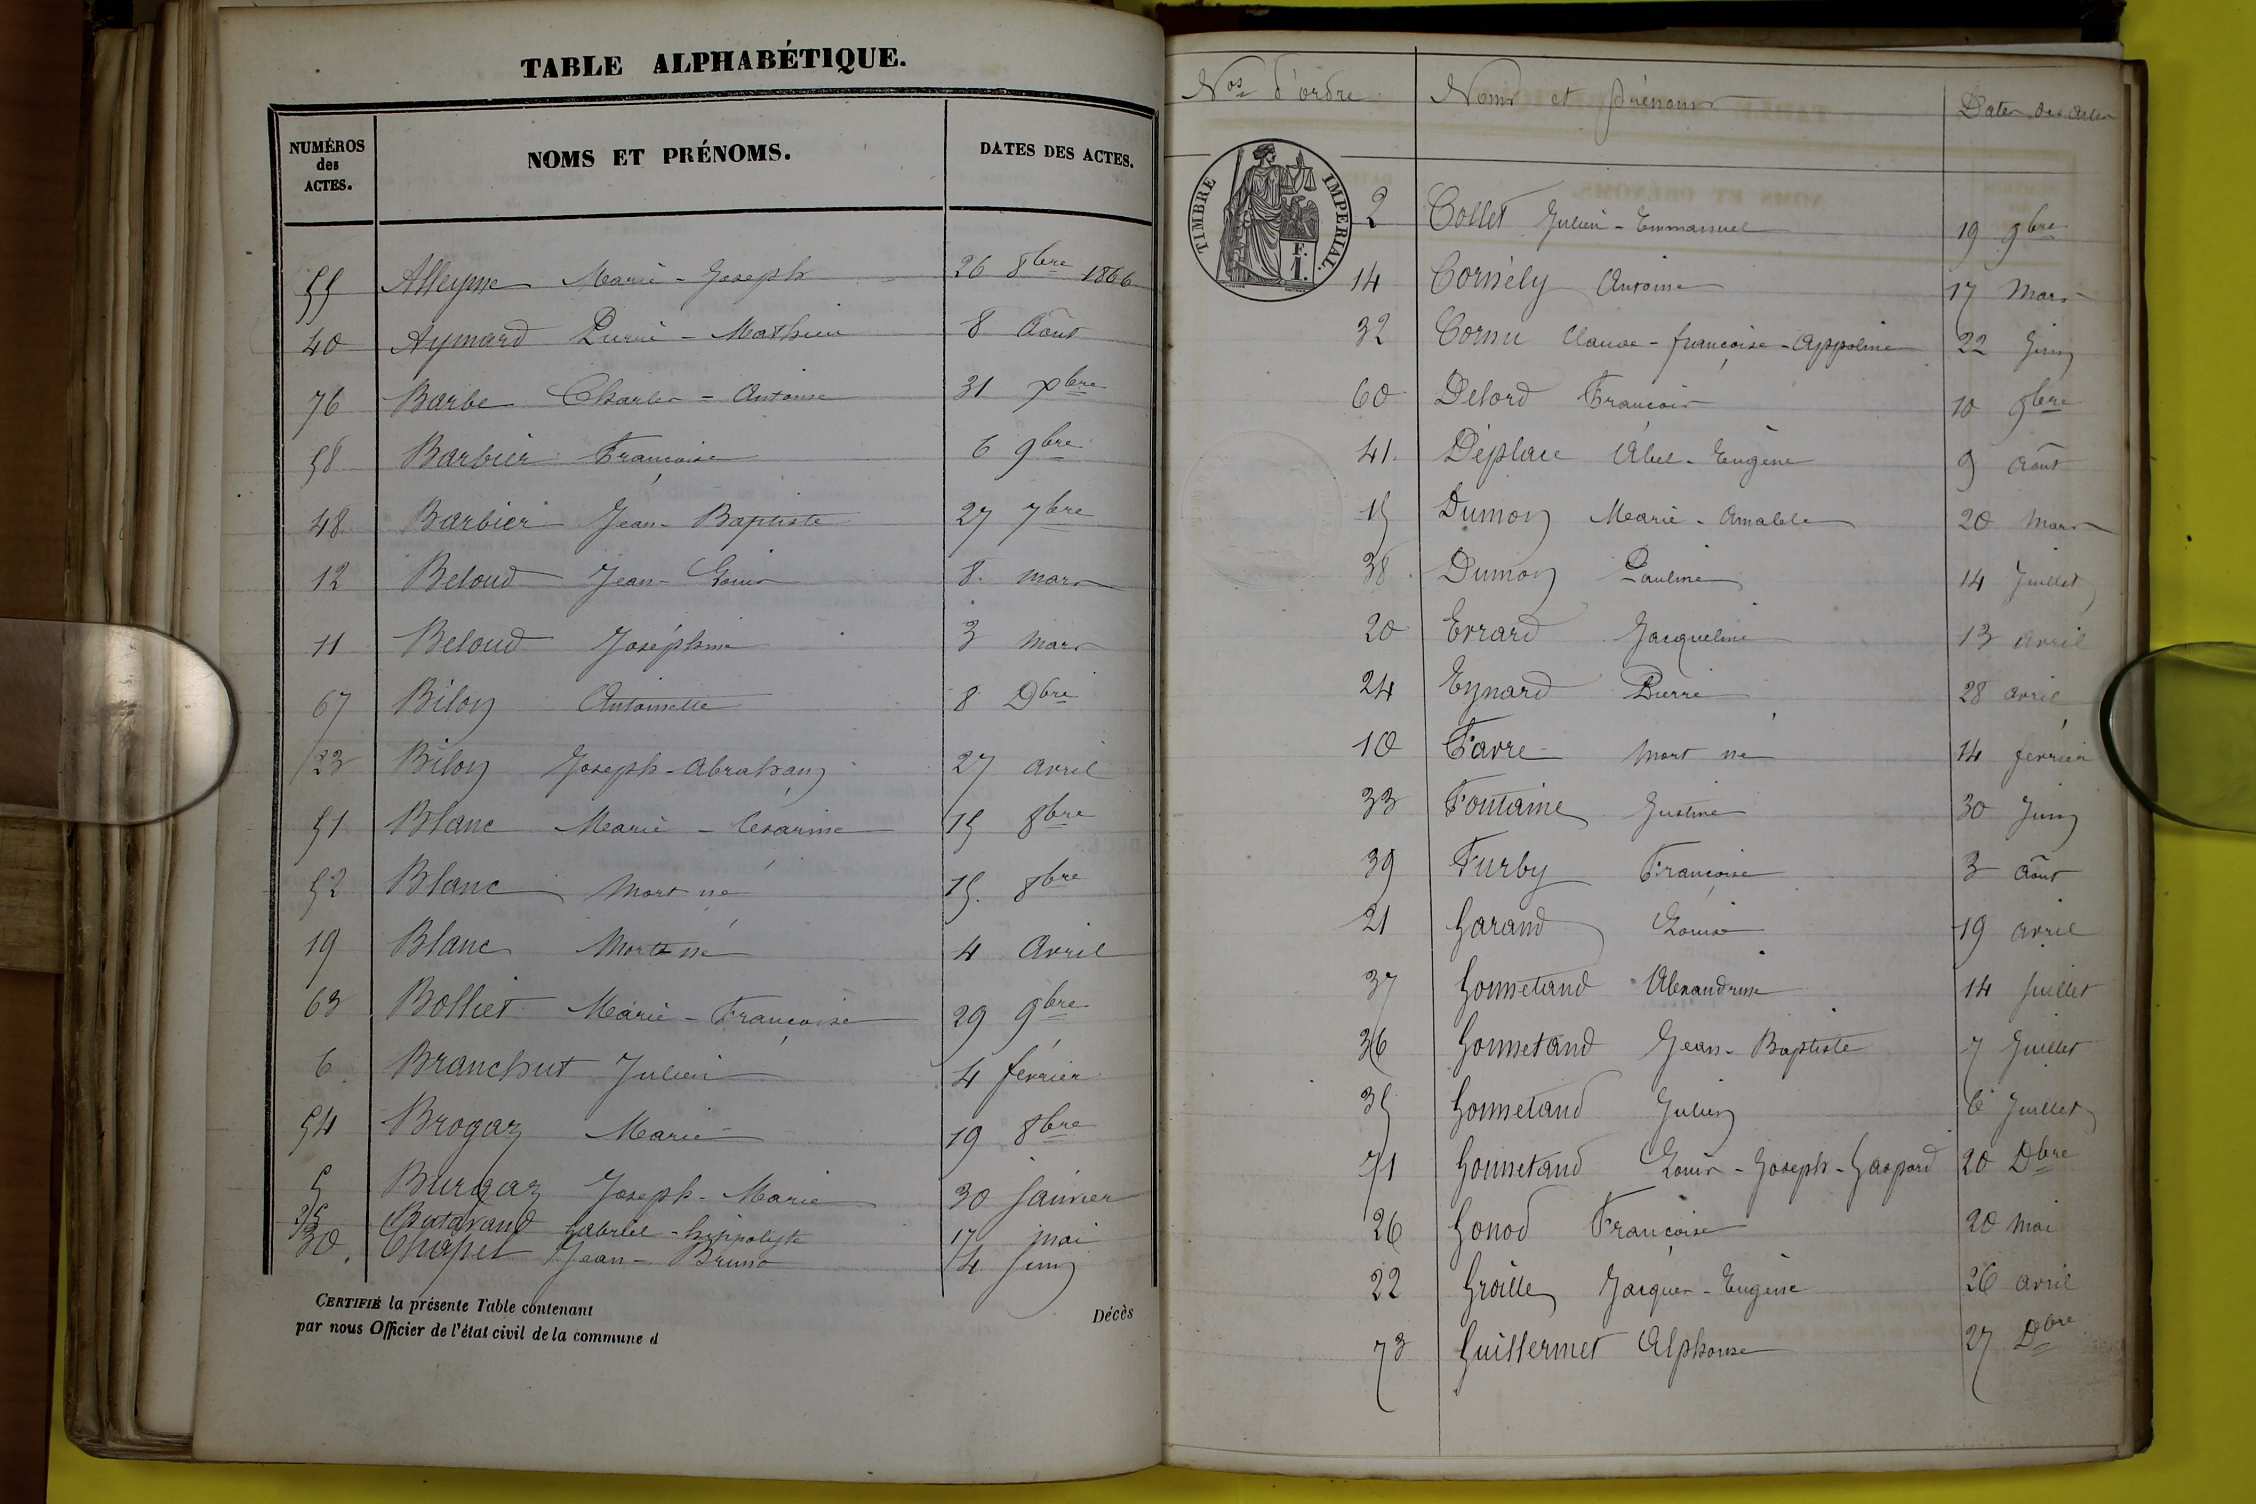 TABLE ALPHABÉTIQUE.
NUMÉROS des ACTES. NOMS ET PRÉNOMS. DATES DES ACTES.
55 Alleyme Marie-Joseph 26 8bre 1866
40 Aymard Pierre-Mathieu 8 Août
76 Barbe Charles-Antoine 31 Xbre
58 Barbier Françoise 6 9bre
48 Barbier Jean-Baptiste 27 7bre
12 Beloud Jean-Louis 8 mars
11 Beloud Joséphine 3 mars
67 Bilon Antoinette 8 Dbre
23 Bilon Joseph-Abraham 27 avril
51 Blanc Marie-Césarine 15 8bre
52 Blanc Mort né 15. 8bre
19 Blanc Mort né 4 Avril
63 Bolliet Marie-Françoise 29 9bre
6 Branchut Julien 4 février
54 Brogaz Marie 19 8bre
5 Burgaz Joseph-Marie 30 janvier
25 Butavand Gabriel-hippolyte 17 mai
30 Chapel Jean-Bruno 4 juin
CERTIFIÉ la présente Table contenant Décès
par nous Officier de l'état civil de la commune d
Nos d'ordre Noms et prénoms Dates des actes
TIMBRE IMPERIAL.
F. 1.
2 Collet Julien-Emmanuel 19 9bre
14 Cornély Antoine 17 Mars
32 Cornu Claude-françoise-Appoline 22 Juin
60 Delord François 10 9bre
41. Déplace Abel-Eugène 9 Août
15 Dumon Marie-Amable 20 Mars
38. Dumon Pauline 14 Juillet
20 Evrard Jacqueline 13 avril
24 Eynard Pierre 28 avril
10 Favre Mort né 14 février
33 Fontaine Justine 30 Juin
39 Furby Françoise 3 Août
21 Garand Louise 19 avril
37 Gonnetand Alexandrine 14 juillet
36 Gonnetand Jean-Baptiste 7 Juillet
35 Gonnetand Julien 6 Juillet
71 Gonnetand Louis-Joseph-Gaspard 20 Dbre
26 Gonod Françoise 20 Mai
22 Groille Jacques-Eugène 26 avril
73 Guillermet Alphonse 27 Dbre